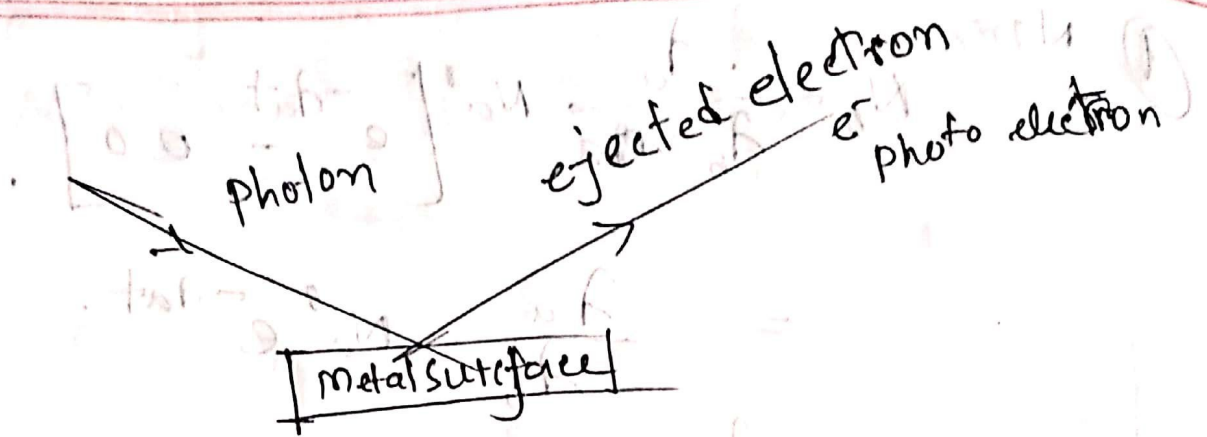 photon
ejected electron
e-
photo electron
Metal surface